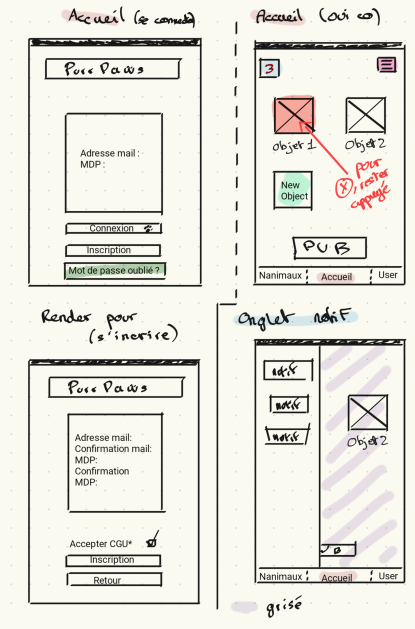 Accueil (se connecter)
Purr Paws
Adresse mail :
MDP :
Connexion
Inscription
Mot de passe oublié ?
Accueil (oui co)
3
Objet 1
Objet 2
pour
(X), rester
appuyé
New
Object
PUB
Nanimaux
Accueil
User
Render pour
(s'incrire)
Purr Paws
Adresse mail:
Confirmation mail:
MDP:
Confirmation
MDP:
Accepter CGU*
Inscription
Retour
Onglet notif
notif
notif
notif
Objet 2
Nanimaux
Accueil
User
grisé